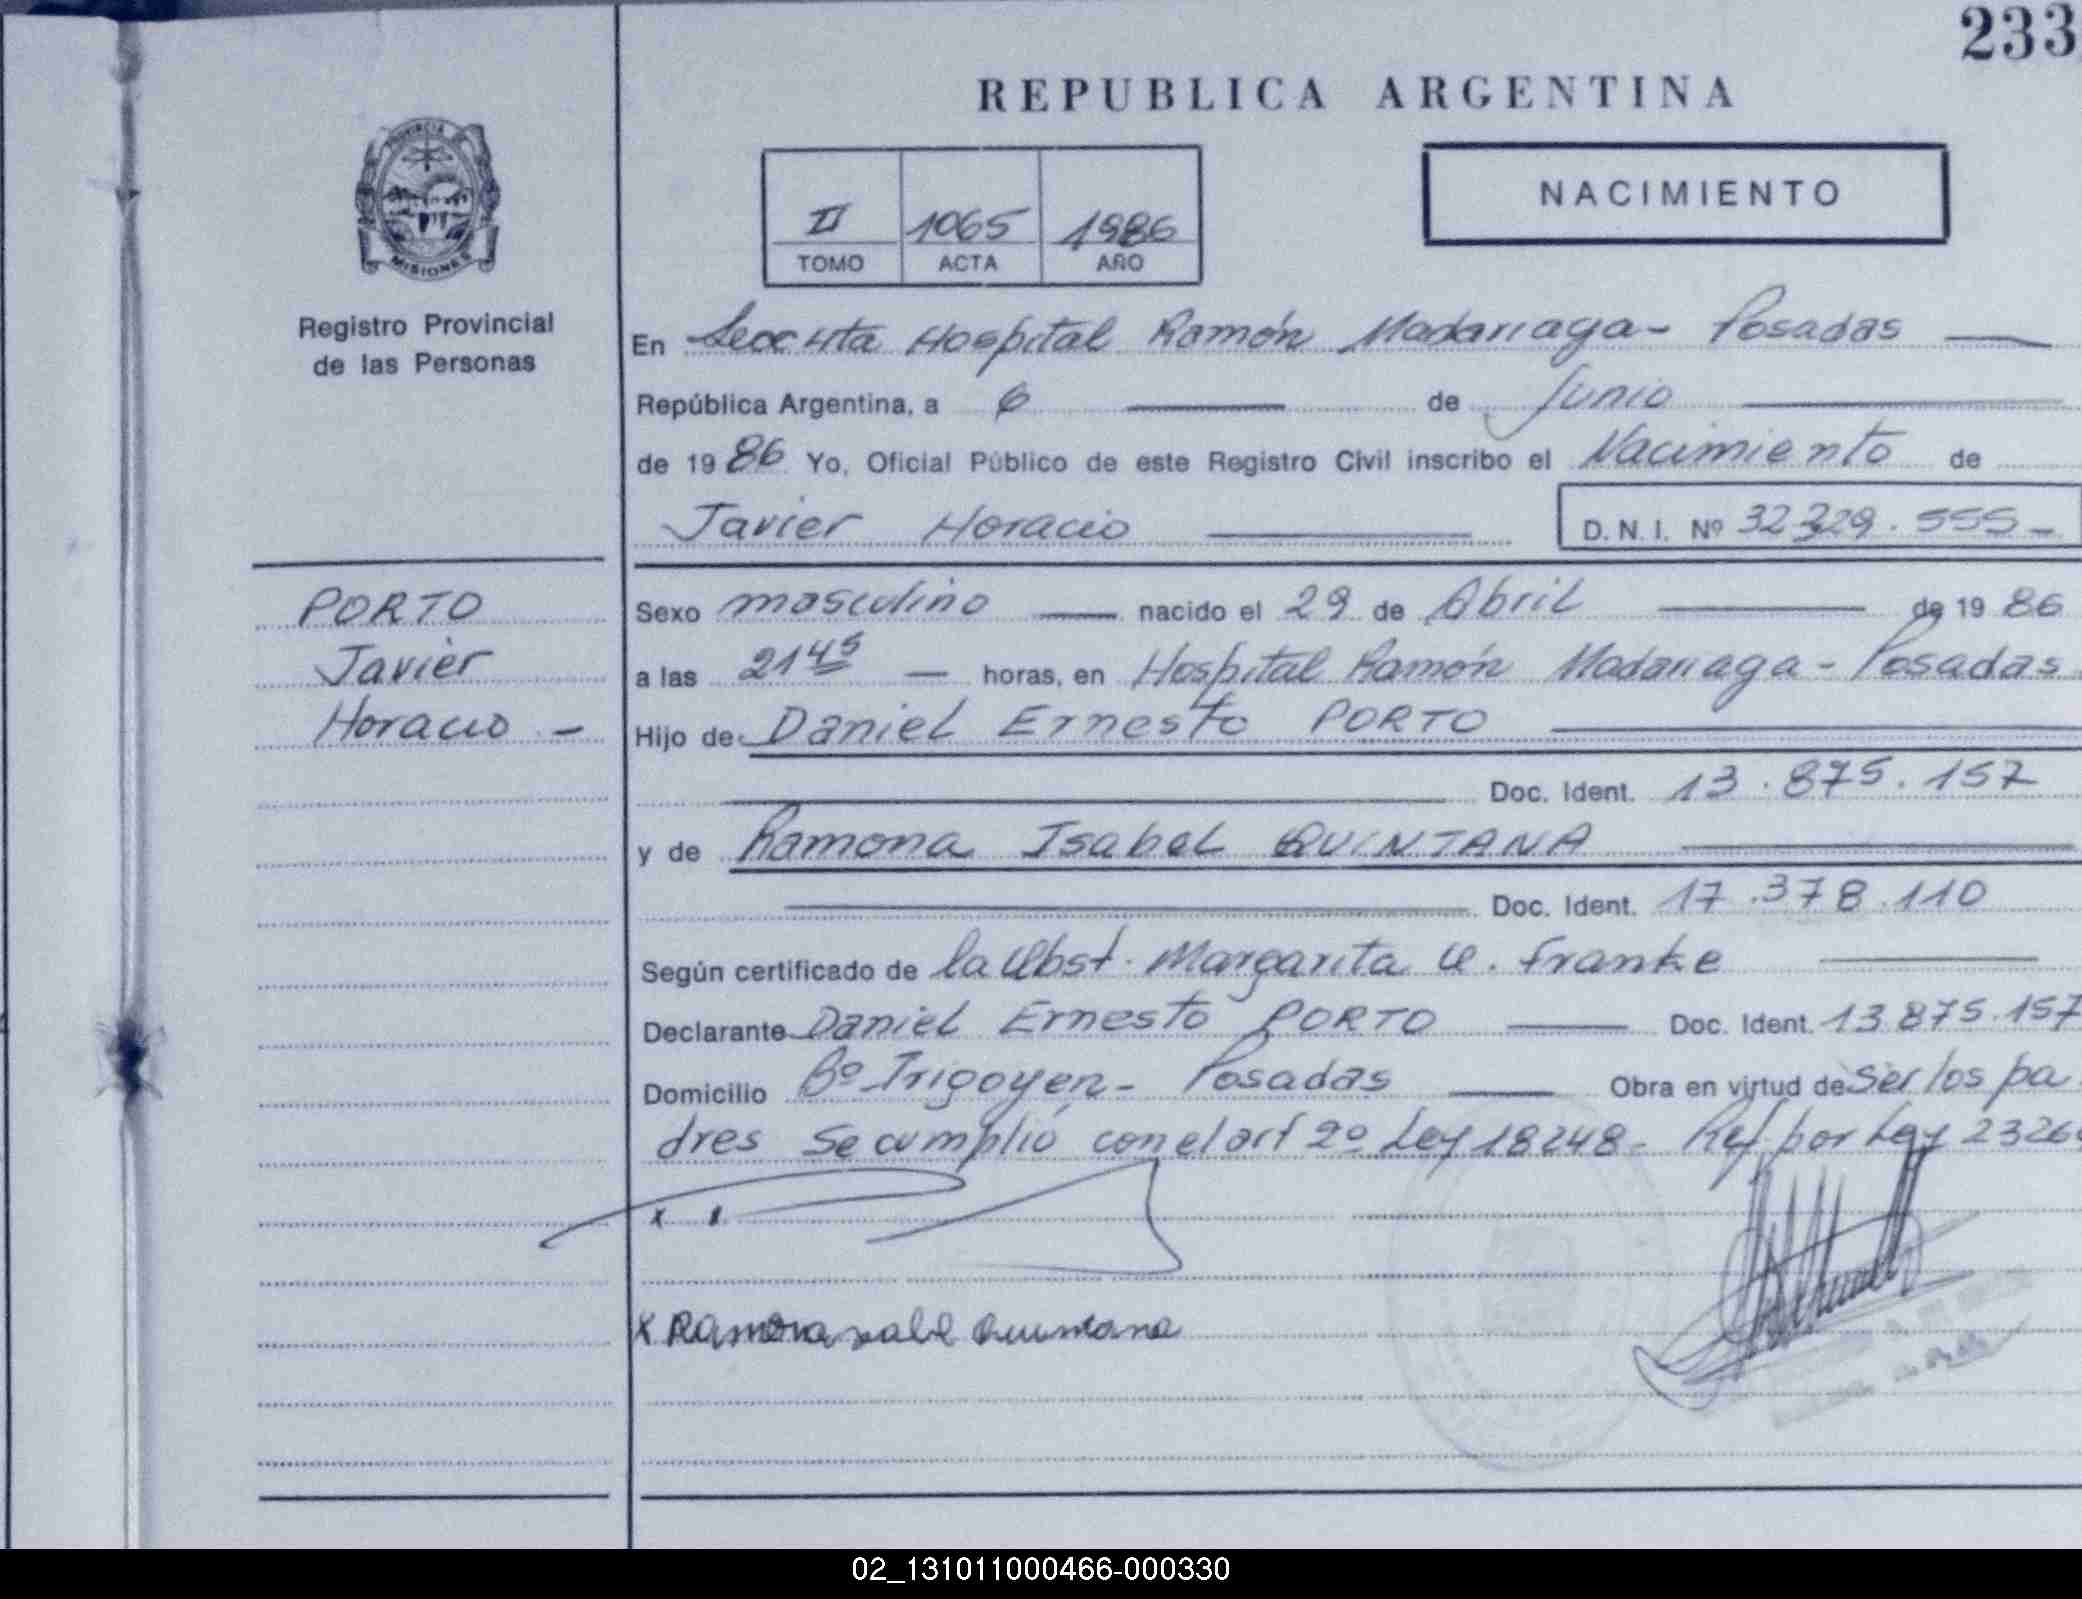 233
REPUBLICA ARGENTINA
PROVINCIA DE
MISIONES
Registro Provincial
de las Personas
II 1065 1986
TOMO ACTA AÑO
NACIMIENTO
En Secc 4ta Hospital Ramón Madariaga - Posadas —
República Argentina, a 6 — de Junio —
de 1986 Yo, Oficial Público de este Registro Civil inscribo el Nacimiento de
Javier Horacio — D.N.I. Nº 32329.555-
PORTO
Javier
Horacio -
Sexo masculino — nacido el 29 de Abril — de 1986
a las 21 45 — horas, en Hospital Ramón Madariaga - Posadas
Hijo de Daniel Ernesto PORTO —
Doc. Ident. 13.875.157
y de Ramona Isabel QUINTANA —
Doc. Ident. 17.378.110
Según certificado de la Obst. Margarita Franke —
Declarante Daniel Ernesto PORTO — Doc. Ident. 13.875.157
Domicilio Bº Irigoyen - Posadas — Obra en virtud de Ser los pa
dres Se cumplió con el art 2º Ley 18248- Ref. por Ley 2326
x
x Ramona Quintana
02_131011000466-000330